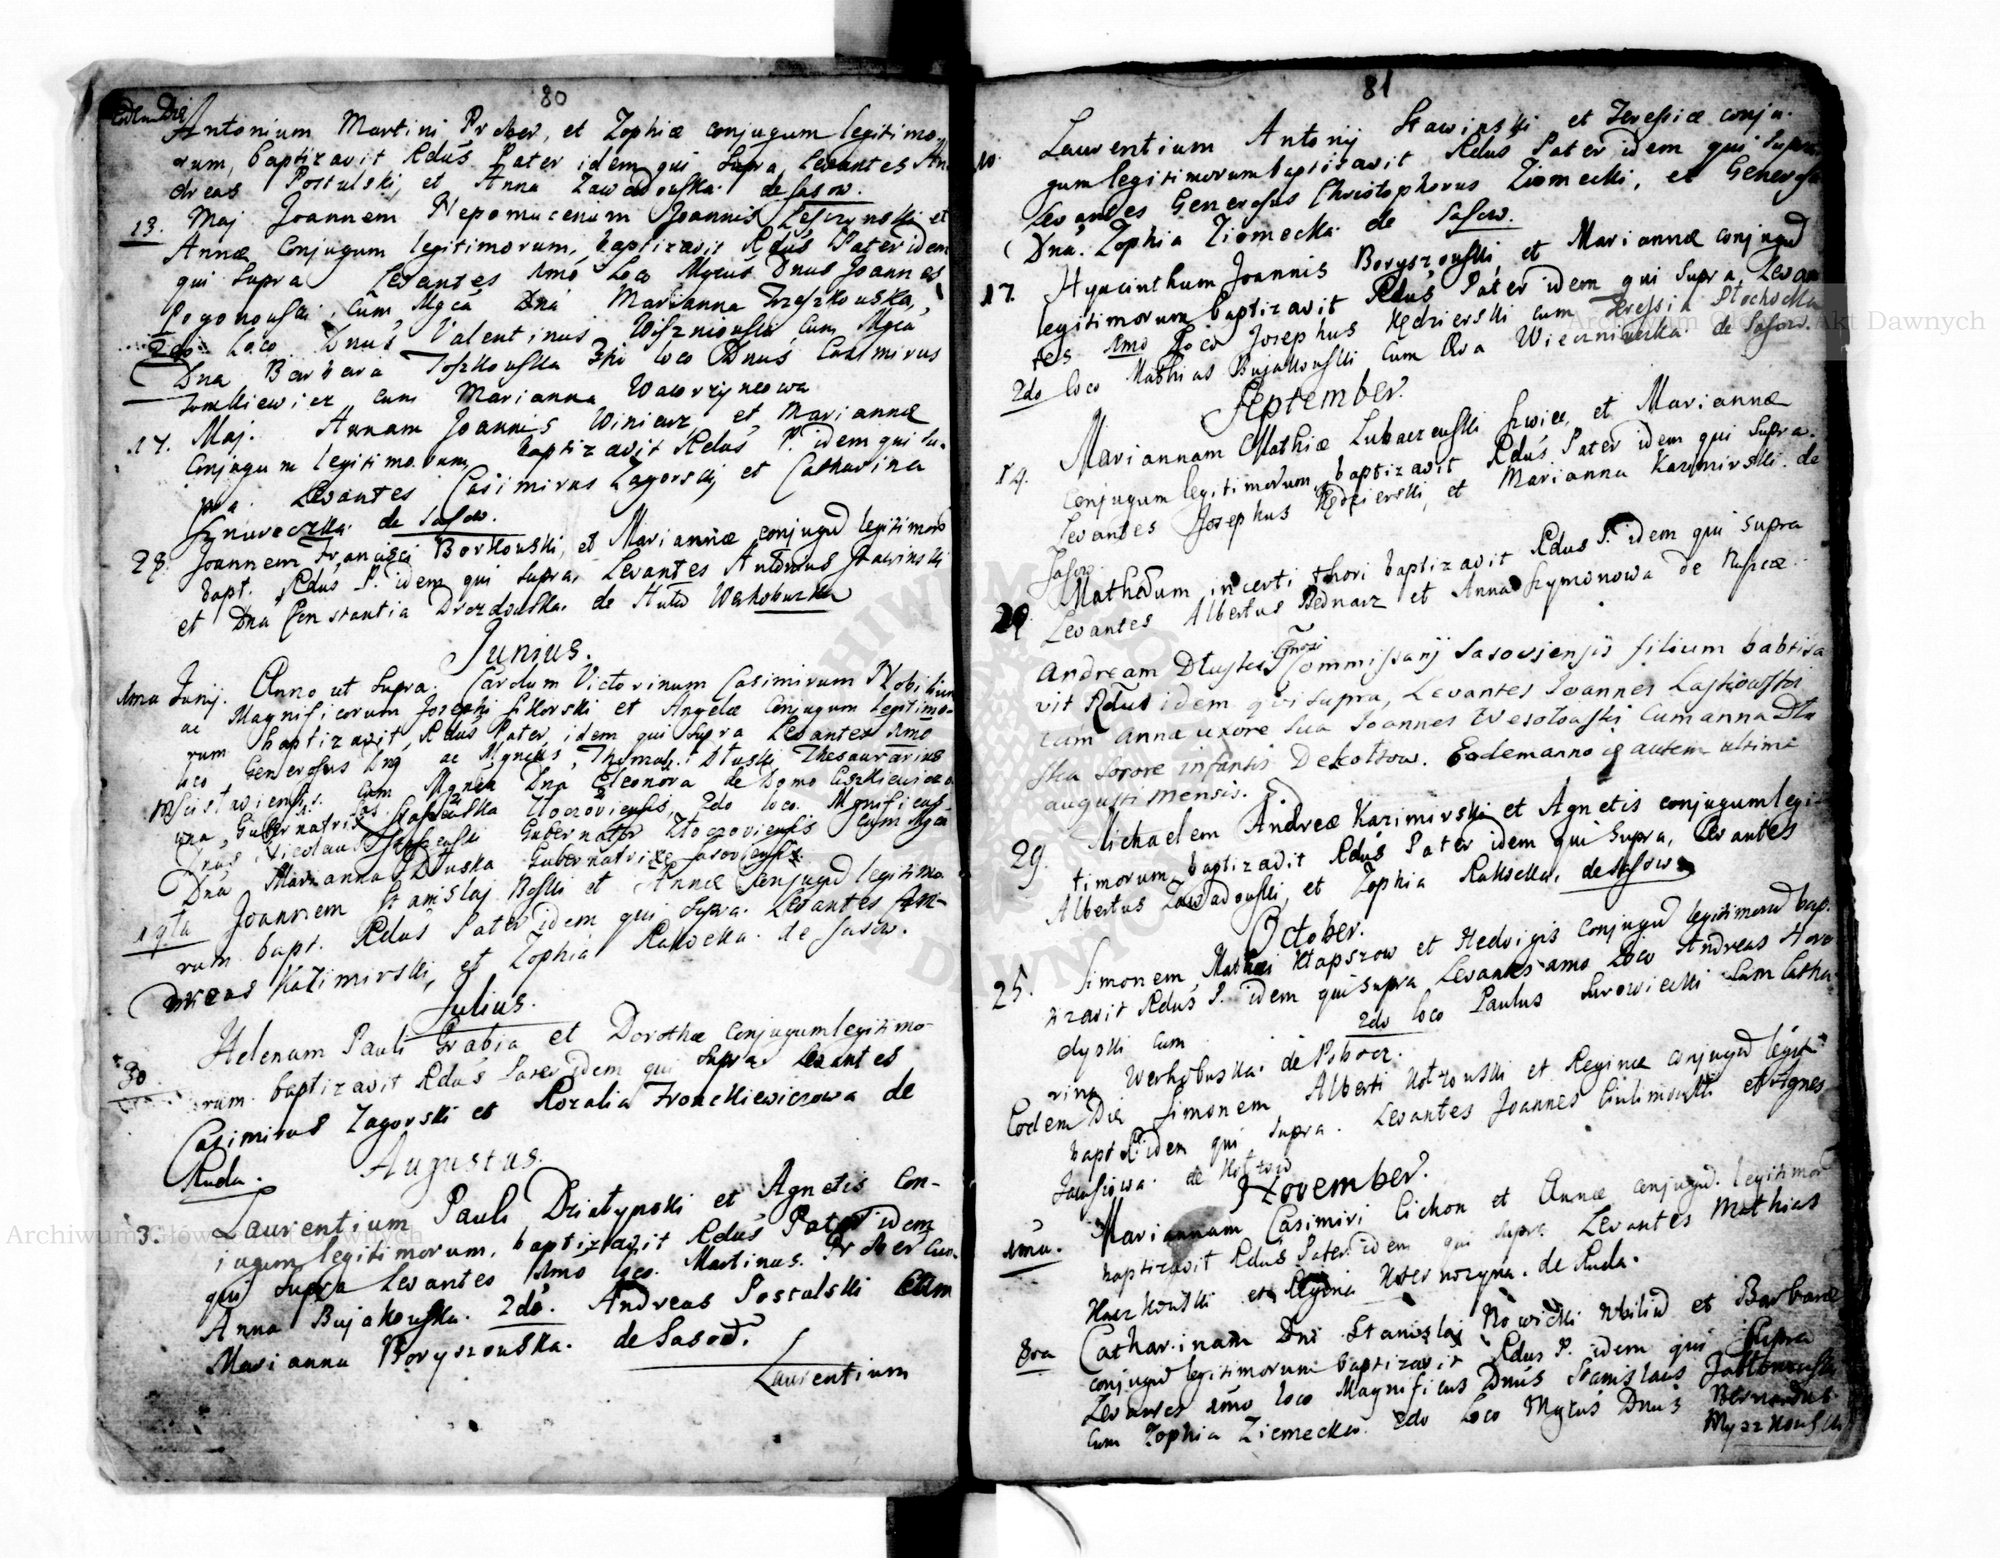 80
Eodem Die
Antonium Martini Prober, et Zophiæ conjugum legitimo-
rum, baptizavit Rdus Pater idem qui supra, Levantes An
dreas Postulski, et Anna Zawadouska. de Sasow.
13. Maj Joannem Nepomucenum Joannis Leszzynski et
Annæ Conjugum legitimorum, baptizavit Rdus Pater idem
qui supra Levantes 1mo Loco Mgcus Dnus Joannes
Pogonouski, Cum Mgca Dna Marianna Trzeszkouska,
2do Loco Dnus Valentinus Wiszniouski, Cum Mgca
Dna Barbara Toszkouska 3tio loco Dnus Casimirus
Tomkiewicz cum Marianna Wawrzyncowa
17. Maj. Annam Joannis Winiarz, et Mariannæ
Conjugum legitimorum baptizavit Rdus P. idem qui su-
pra. Levantes Casimirus Zagorski et Catharina
Sznureczka. de Sasow.
28. Joannem Francisci Borkouski, et Mariannæ conjugu legitimoru
bapt. Rdus P. idem qui supra, Levantes Antonius Stawinski
et Dna Constantia Drozdouska. de Huta Werhobuzka
Junius.
1ma Junij. Anno ut supra, Carolum Victorinum Casimirum Nobilium
ac Magnificorum Josephi Sikorski et Angelæ Conjugum legitimo-
rum baptizavit, Rdus Pater idem qui supra Levantes 1mo
loco Generosus Dnus ac Mgncus, Thomas Dłuski Thesaurarius
Mscislaviensis. cum Mgnca Dna Eleonora de Domo
Gubernatrix Złoczoviensis, 2do loco. Mgnificus
Dnus Nicolaus Gubernator Złoczoviensis cum Mgca
Dna Marianna Dłuska Gubernatrix Sasoviensis.
19ta Joannem Stanislaj Boski et Annæ Conjugu legitimo
rum bapt. Rdus Pater idem qui supra. Levantes An-
dreas Kazimirski, et Zophia Rakocka. de Sasow.
Julius.
30. Helenam Pauli Grabia et Dorothæ conjugum legitimo-
rum. baptizavit Rdus Pater idem qui supra Levantes
Casimirus Zagorski et Rozalia Fronckiewiczowa de
Ruda.
Augustus.
3. Laurentium Pauli Dziatynski et Agnetis Con-
jugum legitimorum. baptizavit Rdus Pater idem
qui supra Levantes 1mo loco. Martinus. Prober cum
Anna Bujakouska. 2do. Andreas Postulski Cum
Marianna Boryszouska. de Sasow.
Laurentium
81
10. Laurentium Antonij Stawinski et Teressiæ conju.
gum legitimorum baptisavit Rdus Pater idem qui supra.
Levantes Generosus Christophorus Ziomecki, et Generosa
Dna. Zophia Ziomecka de Sasow.
17. Hyacinthum Joannis Boryszouski, et Mariannæ conjugu
legitimorum baptizavit Rdus Pater idem qui supra Levan
tes 1mo loco Josephus Kędzierski cum Teressia Stochocka
2do loco Mathias Bujakouski Cum Eva Wiecznikuska de Sasow.
September.
19. Mariannam Mathiæ Lubaczeuski szwiec, et Mariannæ
Conjugum legitimorum, baptizavit Rdus Pater idem qui supra.
Levantes Josephus Kędzierski, et Marianna Kazimirski. de
Sasow.
29. Mathæum incerti thori baptizavit Rdus P. idem qui supra
Levantes Albertus Bednarz et Anna Szymonowa de Ruscæ.
Andream Dłuski Gnosi Commissarij Sasoviensis filium babtisa
vit Rdus idem qui supra, Levantes Joannes Laskowski
cum Anna uxore sua Joannes Wesołowski Cum anna Dłu
ska sorore infantis Dekoltow. Eodem anno is autem ultima
augusti mensis.
29. Michaelem Andreæ Kazimirski et Agnetis conjugum legi
timorum baptizavit Rdus Pater idem qui supra, Levantes
Albertus Zawadouski, et Zophia Rakocka. de Sasow
October.
25. Simonem Mathæi Kłapszow et Hedvigis Conjugu legitimoru bap.
tizavit Rdus P. idem qui supra Levantes 1mo Loco Andreas Horo
dyski cum 2do loco Paulus Surowiecki Cum Catha
rina Werhobuska. de Pobocz.
Eodem Die Simonem Alberti Kołtouski et Reginæ conjugu legiti
bapt R. idem qui supra. Levantes Joannes et Agnes
de Kołtow
November.
1ma. Mariannam Casimiri Cichon et Annæ conjugu. legitimor
baptizavit Rdus Pater idem qui supra Levantes Mathias
Haczkouski et Regina de Ruda.
8va Catharinam Dni Stanislaj Nowicki Nbiliu et Barbaræ
conjugu legitimorum baptizavit Rdus P. idem qui supra
Levantes 1mo loco Magnificus Dnus Stanislaus Jabłonouski
Cum Zophia Ziemecka 2do Loco Mgtus Dnus Bernardus
Myszkouski